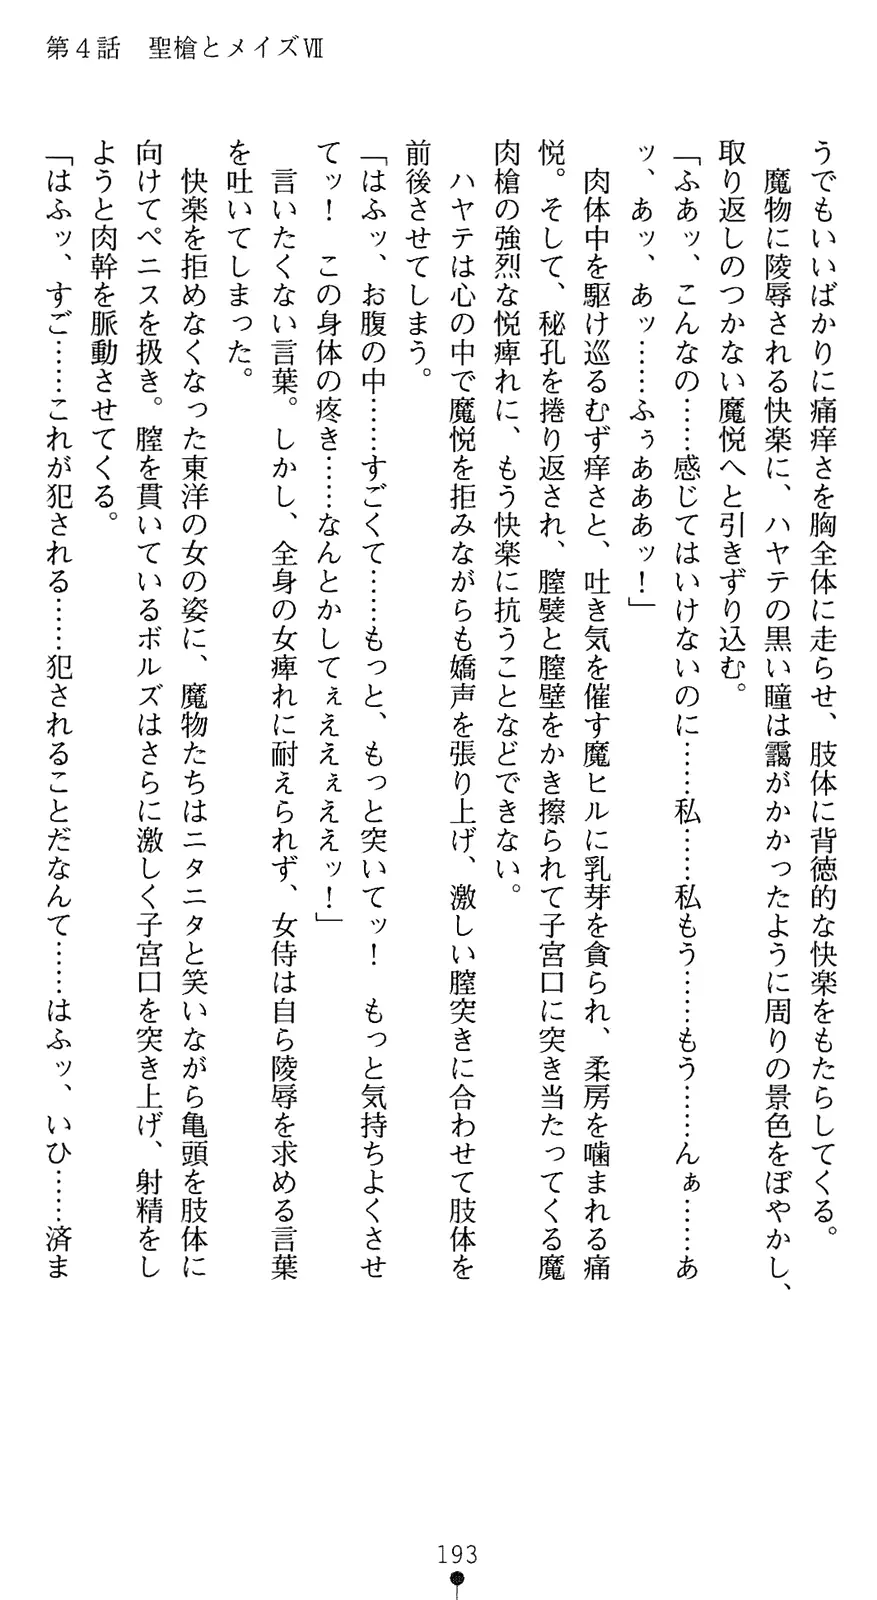 第４話　聖槍とメイズⅦ
うでもいいばかりに痛痒さを胸全体に走らせ、肢体に背徳的な快楽をもたらしてくる。
　魔物に陵辱される快楽に、ハヤテの黒い瞳は靄がかかったように周りの景色をぼやかし、
取り返しのつかない魔悦へと引きずり込む。
「ふあッ、こんなの……感じてはいけないのに……私……私もう……もう……んぁ……あ
ッ、あッ、あッ……ふぅあああッ！」
　肉体中を駆け巡るむず痒さと、吐き気を催す魔ヒルに乳芽を貪られ、柔房を噛まれる痛
悦。そして、秘孔を捲り返され、膣襞と膣壁をかき擦られて子宮口に突き当たってくる魔
肉槍の強烈な悦痺れに、もう快楽に抗うことなどできない。
　ハヤテは心の中で魔悦を拒みながらも嬌声を張り上げ、激しい膣突きに合わせて肢体を
前後させてしまう。
「はふッ、お腹の中……すごくて……もっと、もっと突いてッ！　もっと気持ちよくさせ
てッ！　この身体の疼き……なんとかしてぇええぇええッ！」
　言いたくない言葉。しかし、全身の女痺れに耐えられず、女侍は自ら陵辱を求める言葉
を吐いてしまった。
　快楽を拒めなくなった東洋の女の姿に、魔物たちはニタニタと笑いながら亀頭を肢体に
向けてペニスを扱き。膣を貫いているボルズはさらに激しく子宮口を突き上げ、射精をし
ようと肉幹を脈動させてくる。
「はふッ、すご……これが犯される……犯されることだなんて……はふッ、いひ……済ま
193